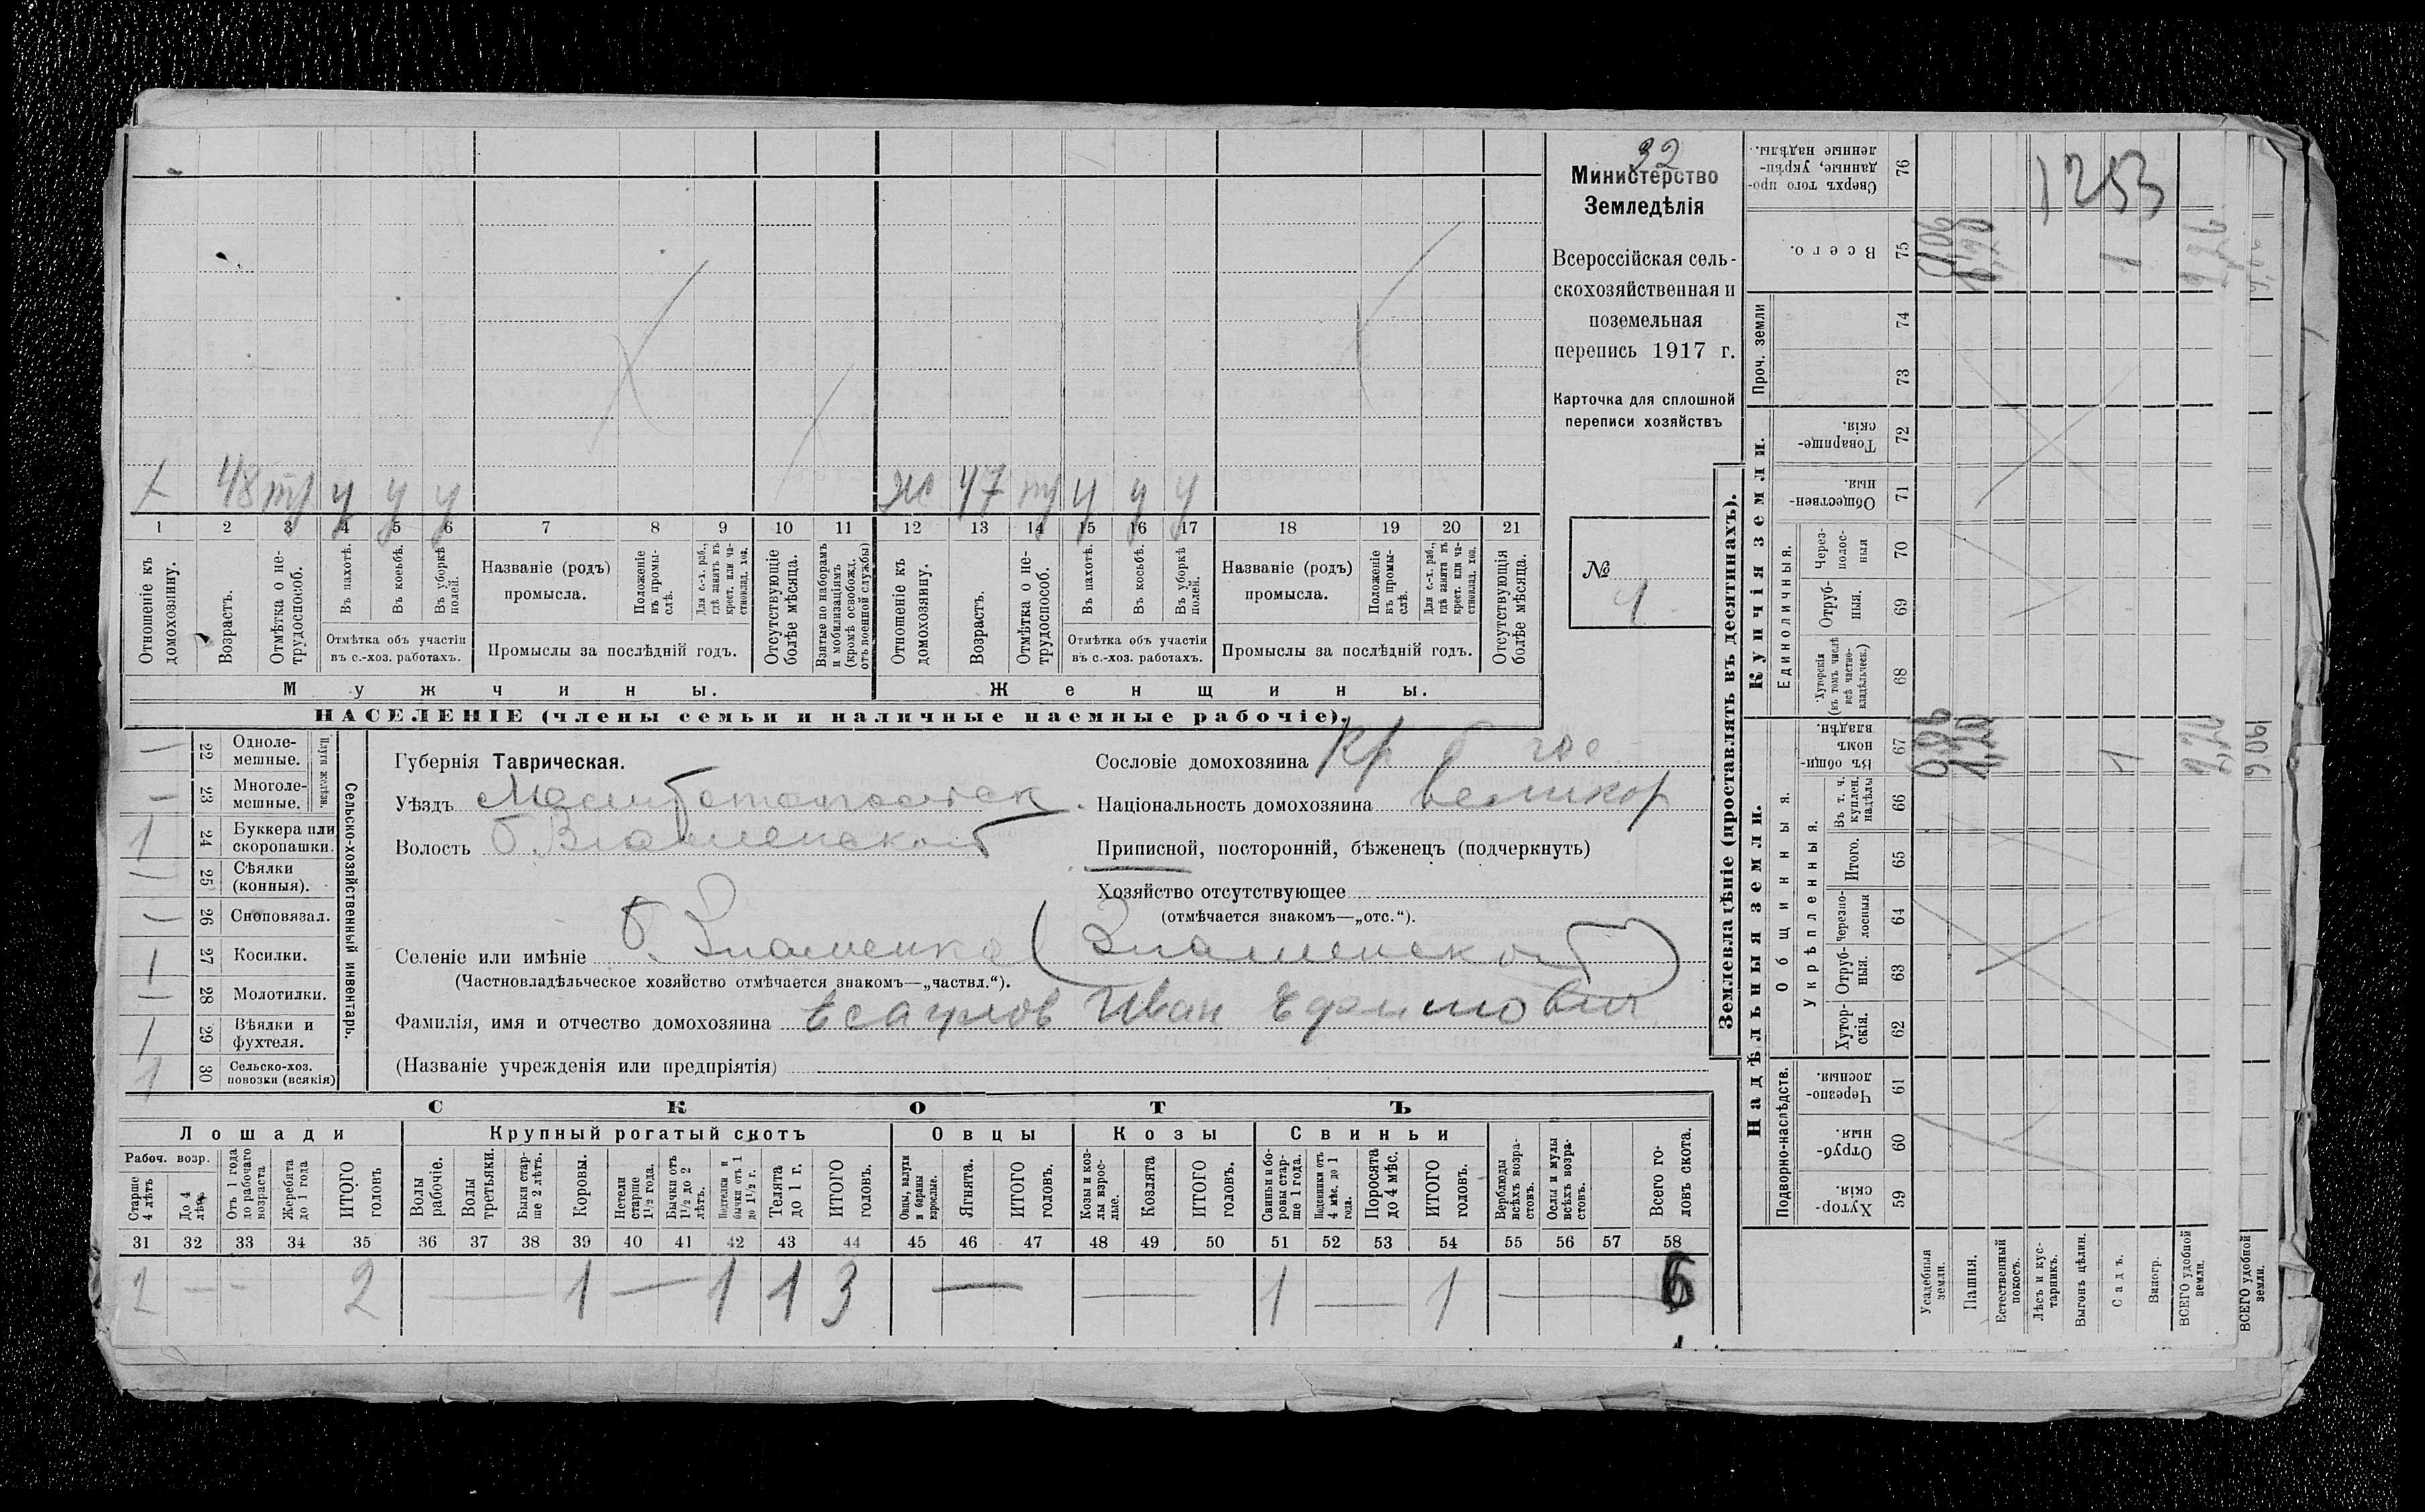 32
Министерство
Земледѣлія
Всероссійская сель-
скохозяйственная и
поземельная
перепись 1917 г.
Карточка для сплошной
переписи хозяйствъ
№
4
48 тр у у у
ж 47 тр у у у
1 2 3 4 5 6 7 8 9 10 11 12 13 14 15 16 17 18 19 20 21
Отношеніе къ домохозяину.
Возрастъ.
Отмѣтка о нетрудоспособ.
Въ пахотѣ.
Въ косьбѣ.
Въ уборкѣ полей.
Отмѣтка объ участіи
въ с.-хоз. работахъ.
Названіе (родъ)
промысла.
Положеніе въ промыслѣ.
Для с.-х. раб., гдѣ занятъ въ крест. или частновлад. хоз.
Промыслы за послѣдній годъ.
Отсутствующіе болѣе мѣсяца.
Взятые по наборамъ и мобилизаціямъ (кромѣ освобожд. отъ военной службы)
Отношеніе къ домохозяину.
Возрастъ.
Отмѣтка о нетрудоспособ.
Въ пахотѣ.
Въ косьбѣ.
Въ уборкѣ полей.
Отмѣтка объ участіи
въ с.-хоз. работахъ.
Названіе (родъ)
промысла.
Положеніе въ промыслѣ.
Для с.-х. раб., гдѣ занята въ крест. или частновлад. хоз.
Промыслы за послѣдній годъ.
Отсутствующія болѣе мѣсяца.
Мужчины.
Женщины.
НАСЕЛЕНІЕ (члены семьи и наличные наемные рабочіе).
Сельско-хозяйственный инвентарь.
Плуги желѣзн.
— 22 Однолемешные.
— 23 Многолемешные.
1 24 Буккера или скоропашки.
— 25 Сѣялки (конныя).
— 26 Сноповязал.
1 27 Косилки.
— 28 Молотилки.
1 29 Вѣялки и фухтеля.
1 30 Сельско-хоз. повозки (всякія)
Губернія Таврическая.
Уѣздъ
Волость Б. Знаменской
Селеніе или имѣніе Б. Знаменка (Знаменской)
(Частновладѣльческое хозяйство отмѣчается знакомъ—„частвл.“).
Фамилія, имя и отчество домохозяина Есаулов Иван Ефимович
(Названіе учрежденія или предпріятія)
Сословіе домохозяина Кр
Національность домохозяина великор
Приписной, посторонній, бѣженецъ (подчеркнуть)
Хозяйство отсутствующее
(отмѣчается знакомъ—„отс.“).
СКОТЪ
Лошади
Крупный рогатый скотъ
Овцы
Козы
Свиньи
Рабоч. возр.
Старше 4 лѣтъ
До 4 лѣтъ
Отъ 1 года до рабочаго возраста
Жеребята до 1 года
ИТОГО головъ
Волы рабочіе.
Волы третьяки.
Быки старше 2 лѣтъ.
Коровы.
Нетели старше 1½ года.
Бычки отъ 1½ до 2 лѣтъ.
Подтелки и бычки отъ 1 до 1½ г.
Телята до 1 г.
ИТОГО головъ.
Овцы, валухи и бараны взрослые.
Ягнята.
ИТОГО головъ.
Козы и козлы взрослые.
Козлята
ИТОГО головъ.
Свиньи и боровы старше 1 года.
Подсвинки отъ 4 мѣс. до 1 года.
Поросята до 4 мѣс.
ИТОГО головъ.
Верблюды всѣхъ возрастовъ.
Ослы и мулы всѣхъ возрастовъ.
Всего головъ скота.
31 32 33 34 35 36 37 38 39 40 41 42 43 44 45 46 47 48 49 50 51 52 53 54 55 56 57 58
2 — — 2 — 1 — 1 1 3 — — 1 — 1 — 6
Землевладѣніе (проставлять въ десятинахъ).
Надѣльныя земли.
Купчія земли.
Проч. земли
Подворно-наслѣдств.
Общинныя.
Укрѣпленныя.
Единоличныя.
Хуторскія 59
Отрубныя. 60
Черезполосныя. 61
Хуторскія. 62
Отрубныя. 63
Черезполосныя 64
Итого. 65
Въ т. ч. куплен. надѣлы 66
Въ общинномъ владѣн. 67
Хуторскія (въ томъ числѣ всѣ частновладѣльческ.) 68
Отрубныя. 69
Черезполосныя 70
Общественныя. 71
Товарищескія. 72
73
74
Всего. 75
Сверхъ того проданные, укрѣпленные надѣлы. 76
1253
Усадебныя земли.
Пашня.
Естественный покосъ.
Лѣсъ и кустарникъ.
Выгонъ цѣлин.
Садъ.
Виногр.
ВСЕГО удобной земли.
ВСЕГО удобной земли.